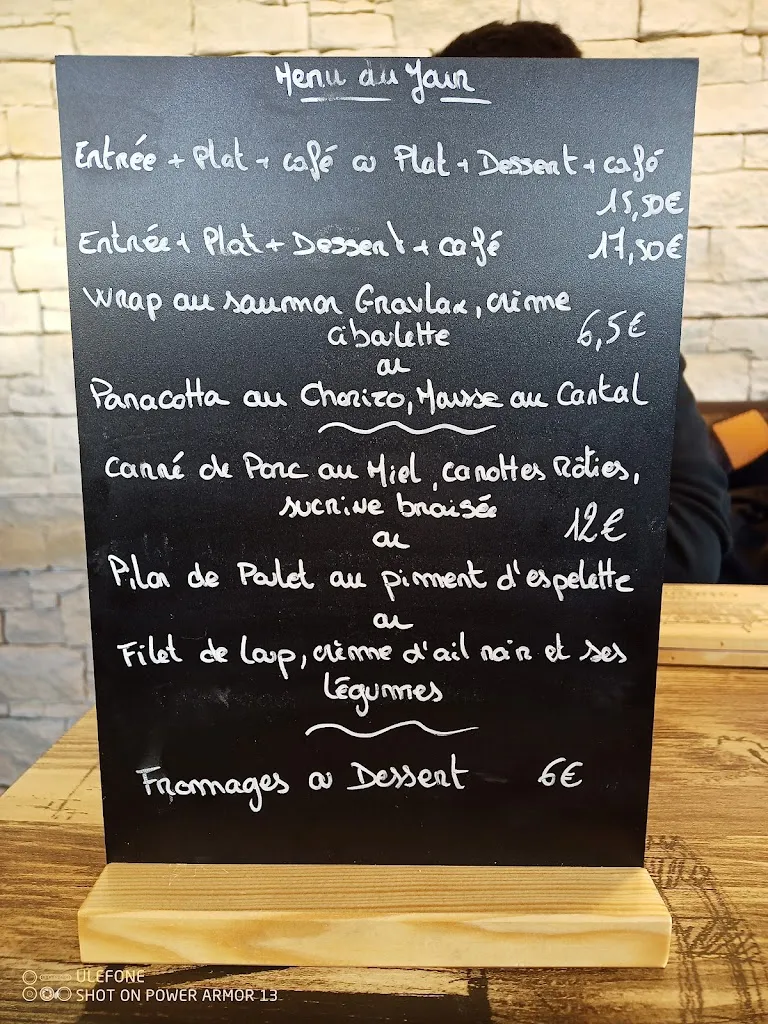 Menu du Jour
Entrée + Plat + café ou Plat + Dessert + café
15,50€
Entrée + Plat + Dessert + café 17,50€
Wrap au saumon Gravlax, crème
ciboulette 6,5€
ou
Panacotta au Chorizo, Mousse au Cantal
Carré de Porc au Miel, carottes Rôties,
sucrine braisée 12€
ou
Pilon de Poulet au piment d'espelette
ou
Filet de loup, crème d'ail noir et ses
légumes
Fromages ou Dessert 6€
ULEFONE
SHOT ON POWER ARMOR 13